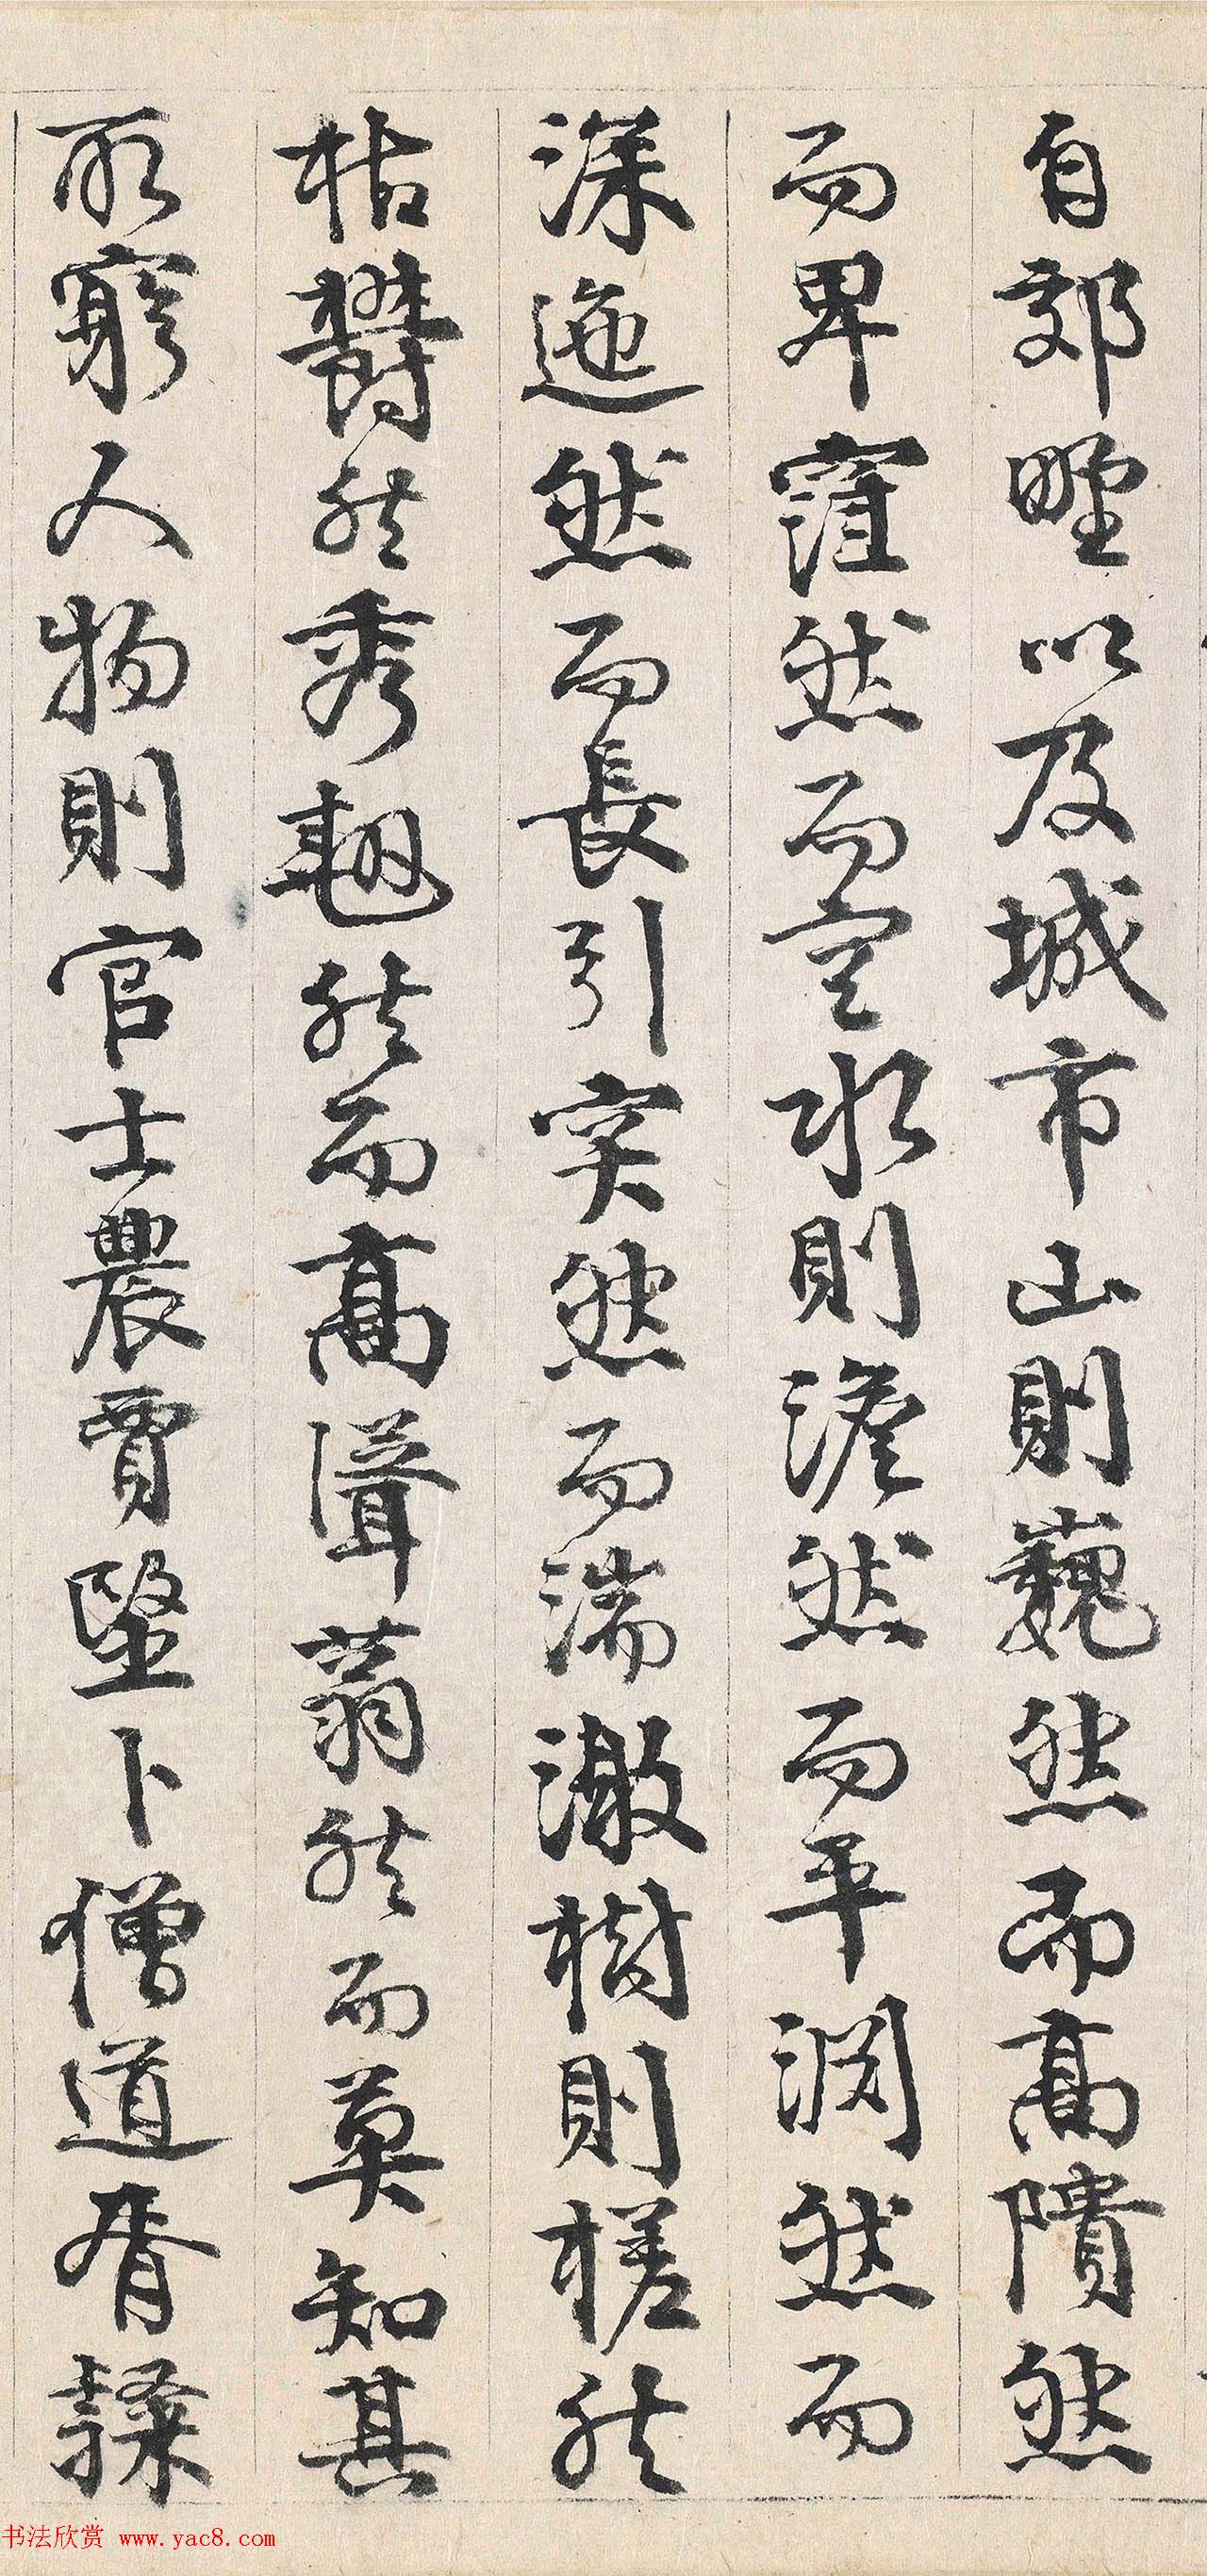 自郊野以及城市山則巍然而高隤然
而卑窪然而空水則澹然而平淵然而
深迤然而長引突然而湍激樹則槎然
枯欝然秀翹然而高聳蓊然而莫知其
所窮人物則官士農賈毉卜僧道胥隸
书法欣赏 www.yac8.com